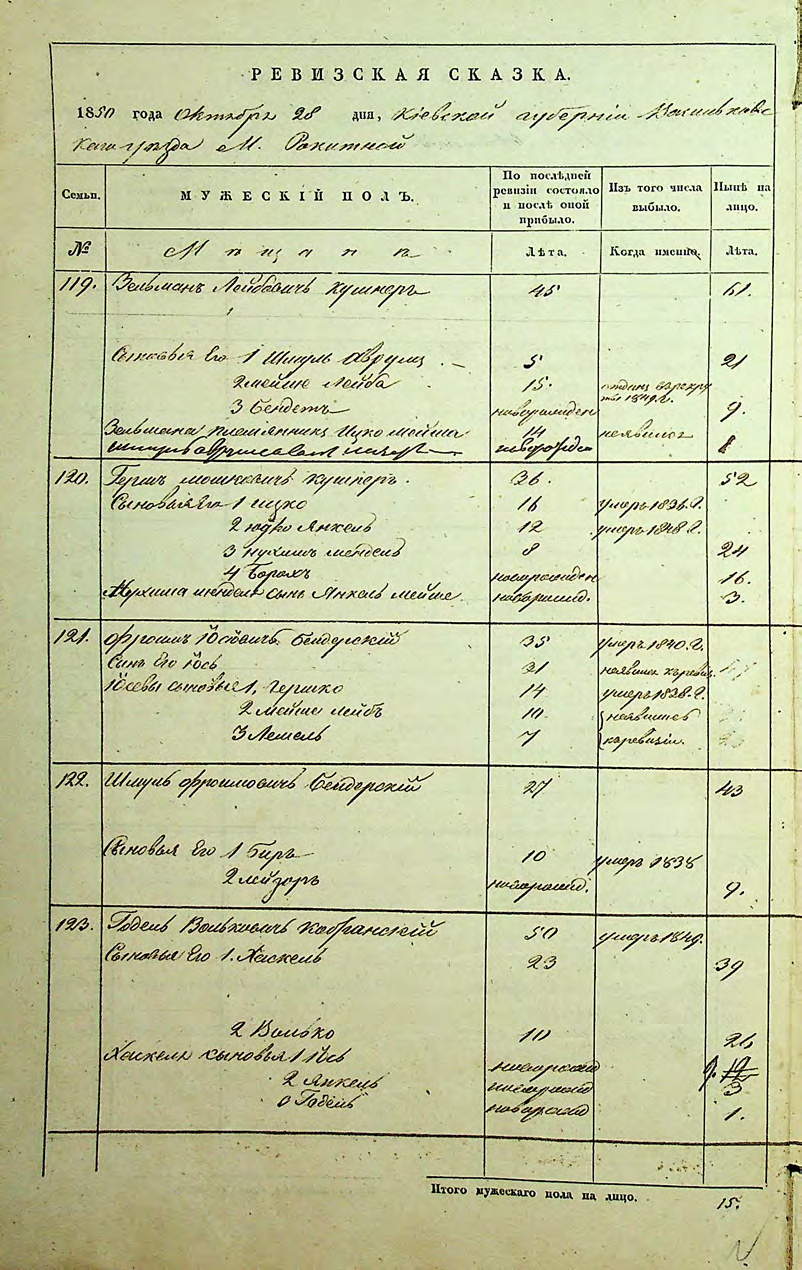 РЕВИЗСКАЯ СКАЗКА.
1850 года Октября 28 дня, Кіевской губерніи Васильковс
каго уезда М. Ракитной
Семьи. МУЖЕСКІЙ ПОЛЪ. По послѣдней ревизіи состояло и послѣ оной прибыло. Изъ того числа выбыло. Нынѣ на лицо.
№ Мѣщане Лѣта. Когда именно. Лѣта.
119. Зельманъ Лейбовичъ Кушнеръ 45 61.
Сыновья Его 1 Шмуль Аврумъ 5 21
2 Мейше Лейба 15. отданъ врекру
тво 1849.г.
3 Бендетъ новорожден 9.
Зельмана племянникъ Ицко Мейше 14 неявился
новорожден 8
120. Гершъ Мошковичъ Кушнеръ. 36. 52
Сыновья Его 1 Ицко 16 умеръ 1836.г.
2 Юдко Янкель 12 умеръ 1848 г.
3 Нухимъ Мендель 8 24
4 Борохъ новорожден 16.
Нухима Менделя сынъ Янкель Мейше. новорожд. 3.
121. Фроимъ Іосіовичъ Бендерскій 35 умеръ 1840.г.
Сынъ Его Іось 21 неявился кревиз.
Іосевы сыновья 1. Гершко 14 умеръ 1838.г.
2 Мейше Лейбъ 10 неявились
3 Лемель 7 кревизіи.
122. Шмуль Фроимовичъ Бендерскій 27 43
Сыновья Его 1 Беръ 10 умеръ 1838
2 Лейзоръ новорожд. 9.
123. Годель Вольковичъ 50 умеръ 1849.
Сыновья Его 1. Хаскель 23 39
2 Волько 10 26
Хаскеля сыновья 1 Іось новорожд 9. 12
2 Янкель новорожд 3
Годель новорожд 1.
Итого мужескаго пола на лицо. 15.